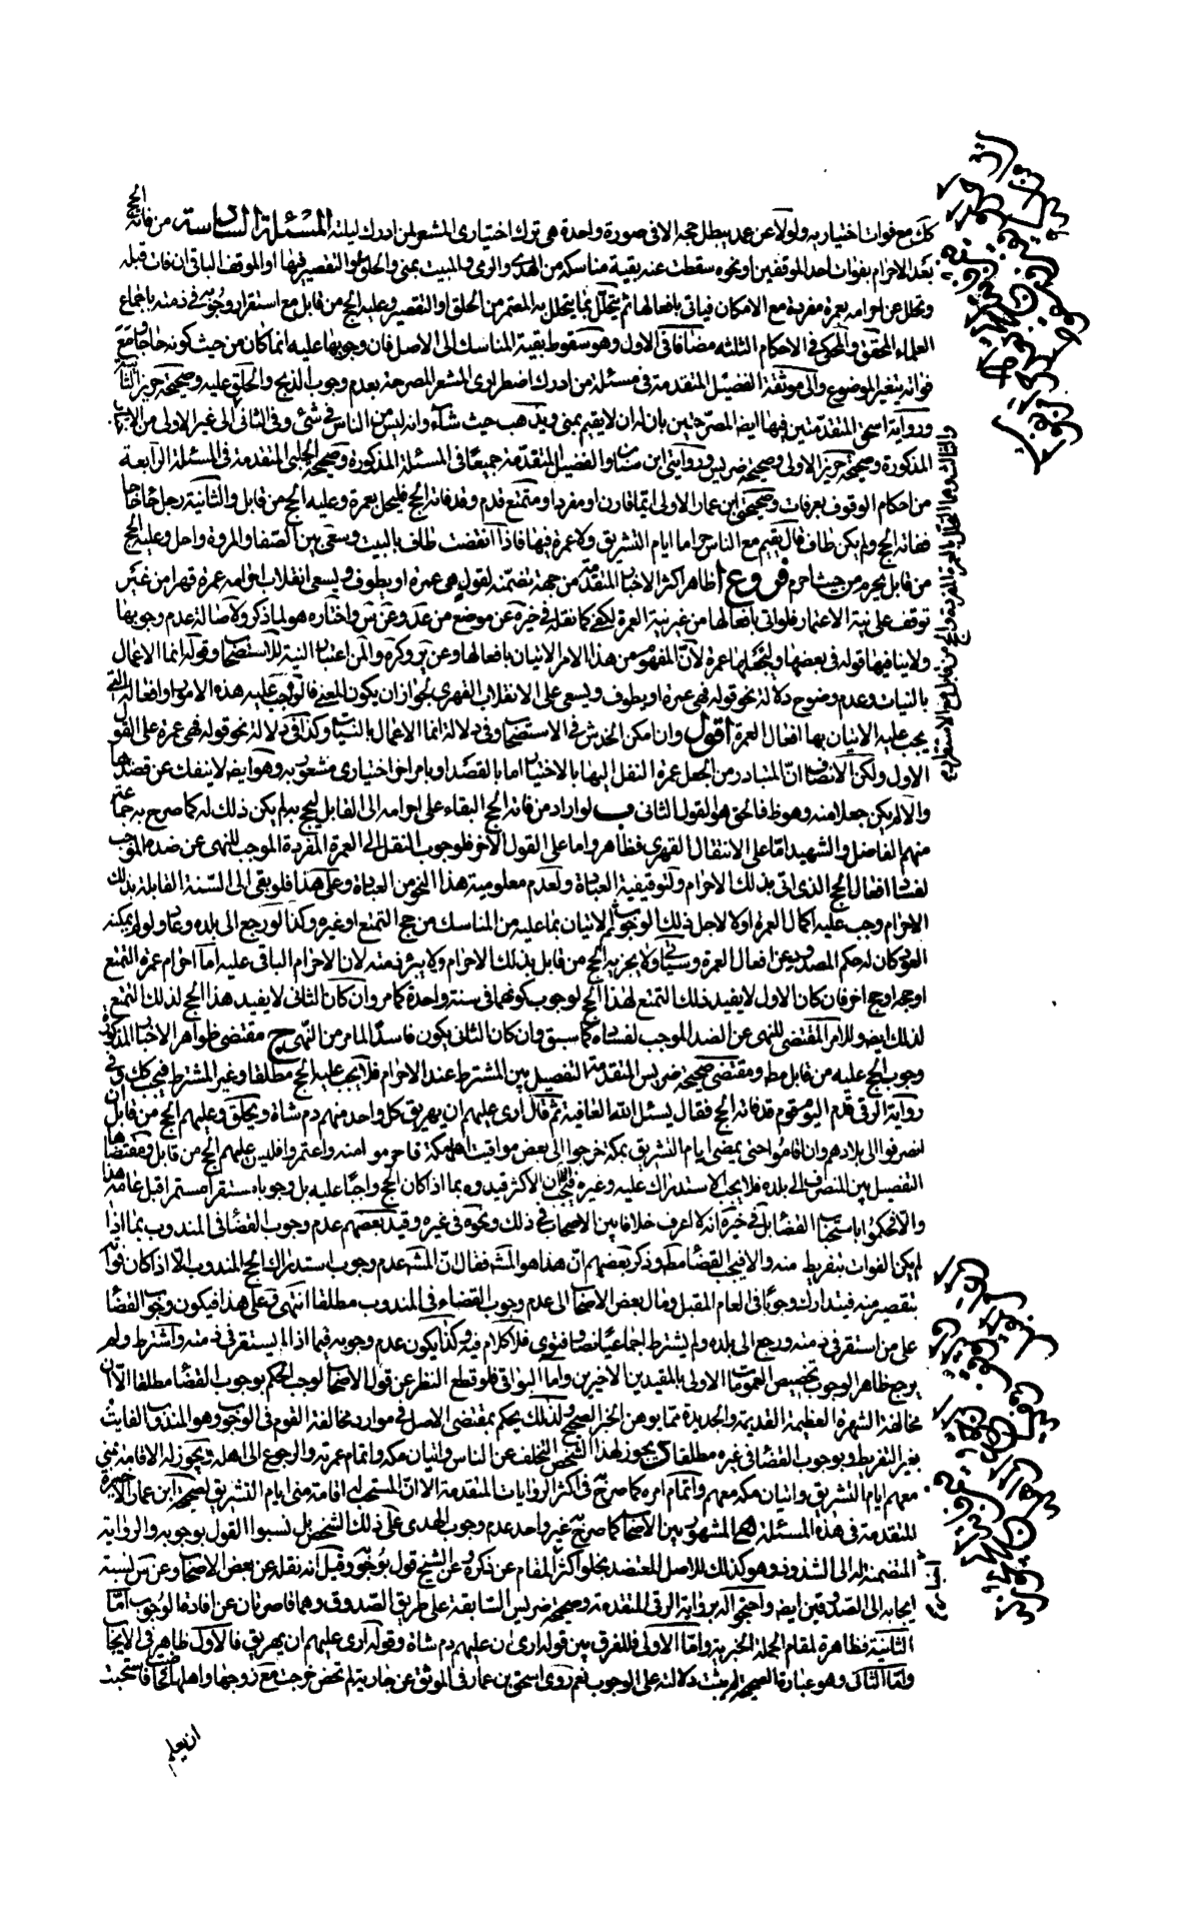 كك مع فوات اختياريه ولو لا عن عمد يبطل حجه الا فى صورة واحدة هى ترك اختيارى المشعر لمن ادرك ليلته المسئلة السادسة من فاته الحج
بعد الاحرام بفوات احد الموقفين او نحوه سقطت عنه بقية مناسكه من الهدى والرمى والمبيت بمنى والحلق او التقصير فيها او الموقف الباقى ان فات قبله
وتحلل عن احرامه بعمرة مفردة مع الامكان فياتى بافعالها ثم يتحلل بما يتحلل به المعتمر من الحلق او التقصير وعليه الحج من قابل مع استقرار وجوبه فى ذمته باجماع
العلماء المحقق والمحكى فى الاحكام الثلثه مضافا فى الاول وهو سقوط بقية المناسك الى الاصل فان وجوبها عليه انما كان من حيث كونه حاجا ومع
فواته يتغير الموضوع والى موثقة الفضيل المتقدمة فى مسئلة من ادرك اضطرارى المشعر المصرحة بعدم وجوب الذبح والحلق عليه وصحيحة حريز الثانية
ورواية اسحق المتقدمتين فيها ايضا المصرحتين بان له ان لا يقيم بمنى ويذهب حيث شاء وانه ليس من الناس فى شئ وفى الثانى الى غير الاولى من الاخبار
المذكورة وصحيحة حريز الاولى وصحيحة ضريس وروايتى ابن سنان والفضيل المتقدمة جميعا فى المسئلة المذكورة وصحيحة الحلبى المتقدمة فى المسئلة الرابعة
من احكام الوقوف بعرفات وصحيحتى ابن عمار الاولى ايما قارن او مفرد او متمتع قدم وقد فاته الحج فليحل بعمرة وعليه الحج من قابل والثانية رجل جاء حاجا
ففاته الحج ولم يكن طاف قال يقيم مع الناس حراما ايام التشريق ولا عمرة فيها فاذا انقضت طاف بالبيت وسعى بين الصفا والمروة واحل وعليه الحج
من قابل يحرم من حيث احرم فروع ا ظاهر اكثر الاخبار المتقدمة من جهة تضمنه لقوله هى عمرة او يطوف ويسعى انقلاب احرامه عمرة قهرا من غير
توقف على نية الاعتمار فلو اتى بافعالها من غير نية العمرة لكفى كما نقله فى خيره عن موضع من عد وعن س واختاره هو لما ذكر ولاصالة عدم وجوبها
ولا ينافيها قوله فى بعضها وليجعلها عمرة لان المفهوم من هذا الامر الاتيان بافعالها وعن ير وكره والمن اعتبار النية للاستصحاب وقوله انما الاعمال
بالنيات وعدم وضوح دلالة نحو قوله فهى عمرة او يطوف ويسعى على الانقلاب القهرى لجواز ان يكون المعنى فالواجب عليه هذه الامور او افعاله التى
يجب عليه الاتيان بها افعال العمرة اقول وان امكن الخدش فى الاستصحاب وفى دلالة انما الاعمال بالنيات وكذا فى دلالة نحو قوله فهى عمرة على القول
الاول ولكن الانصاف ان المتبادر من الجعل عمرة النقل اليها بالاختيار اما بالقصد او بامر اخر اختيارى مشعور به وهو ايضا لا ينفك عن قصدها
والا لم يكن جعلا منه وهو ظ فالحق هو القول الثانى ب لو اراد من فاته الحج البقاء على احرامه الى القابل ليحج به لم يكن ذلك له كما صرح به جماعة
منهم الفاضل والشهيد اما على الانتقال القهرى فظاهر واما على القول الاخر فلوجوب النقل الى العمرة المفردة الموجب للنهى عن ضده الموجب
لفساد افعال الحج الذى اتى بذلك الاحرام ولتوقيفية العبادة ولعدم معلومية هذا النحو من العبادة وعلى هذا فلو بقى الى السنة القابلة بذلك
الاحرام وجب عليه اكمال العمرة اولا لاجل ذلك الوجوب ثم الاتيان بما عليه من المناسك من حج التمتع او غيره وكذا لو رجع الى بلده وعاد ولو لم يمكنه
العود كان له حكم المصدود عن افعال العمرة وسياتى ولا يجزيه الحج من قابل بذلك الاحرام ولا يبرء ذمته لان الاحرام الباقى عليه اما احرام عمرة التمتع
او حجه او حج اخر فان كان الاول لا يفيد ذلك التمتع لهذا الحج لوجوب كونهما فى سنة واحدة كما مر وان كان الثانى لا يفيد هذا الحج لذلك التمتع
لذلك ايضا وللامر المقتضى للنهى عن الضد الموجب لفساده كما سبق وان كان الثانى يكون فاسدا لما مر من النهى ج مقتضى ظواهر الاخبار المذكورة
وجوب الحج عليه من قابل مط ومقتضى صحيحة ضريس المتقدمة التفصيل بين المشترط عند الاحرام فلا يجب عليه الحج مطلقا وغير المشترط فيجب كك وفى
رواية الرقى قدم اليوم قوم قد فاتهم الحج فقال يسئل الله العافية ثم قال ارى عليهم ان يهريق كل واحد منهم دم شاة ويحلق وعليهم الحج من قابل ان
انصرفوا الى بلادهم وان اقاموا حتى يمضى ايام التشريق بمكة خرجوا الى بعض مواقيت اهل مكة فاحرموا منه واعتمروا فليس عليهم الحج من قابل ومقتضاها
التفصيل بين المنصرف الى بلده فلا يجب الاستدراك عليه وغيره فيجب الا ان الاكثر قيدوه بما اذا كان الحج واجبا عليه بل وجوبا مستقرا مستمرا قبل عامه هذا
والا فحكموا باستحباب القضا بل فى خيره انه لا اعرف خلافا بين الاصحاب فى ذلك ونحوه فى غيره وقيد بعضهم عدم وجوب القضا فى المندوب بما اذا
لم يكن الفوات بتفريط منه والا فيجب القضا مط وذكر بعضهم ان هذا هو المشه فقال ان المشه عدم وجوب استدراك الحج المندوب الا اذا كان فواته
بتقصير منه فيتدارك وجوبا فى العام المقبل وقال بعض الاصحاب الى عدم وجوب القضاء فى المندوب مطلقا انتهى وعلى هذا فيكون وجوب القضا
على من استقر فى ذمته ورجع الى بلده ولم يشترط اجماعيا نصا وفتوى فلا كلام فيه وكذا يكون عدم وجوبه فيما اذا لم يستقر فى ذمته واشترط ولم
يرجع ظاهر الوجوب تخصيص العمومات الاولى بالمقيدين الاخيرين واما البواقى فلو قطع النظر عن قول الاصحاب لوجب الحكم بوجوب القضا مطلقا الا ان
مخالفة الشهرة العظيمة القديمة والجديدة مما يوهن الخبر الصحيح ولذلك يحكم بمقتضى الاصل فى موارد مخالفة القوم فى الوجوب وهو المندوب الفايت
بغير التفريط وبوجوب القضا فى غيره مطلقا د يجوز لهذا الشخص التخلف عن الناس واتيان مكه واتمام عمرته والرجوع الى اهله ويجوز له الاقامة بمنى
معهم ايام التشريق واتيان مكه معهم واتمام امره كما صرح به فى اكثر الروايات المتقدمة الا ان المستحب له اقامة منى ايام التشريق لصحيحة ابن عمار الاخيرة
المتقدمة فى هذه المسئلة ه المشهور بين الاصحاب كما صرح به غير واحد عدم وجوب الهدى على ذلك الشخص بل نسبوا القول بوجوبه والرواية
المتضمنة له الى الشذوذ وهو كذلك للاصل المعتضد بخلو اكثر المقام عن ذكره وعن الشيخ قول بوجوبه وقيل انه نقله عن بعض الاصحاب وعن س نسبة
ايجابه الى الصدوقين ايضا واحتجوا له برواية الرقى المتقدمة وصحيحة ضريس السابقة على طريق الصدوق وهما قاصرتان عن افادة الوجوب اما
الثانية فظاهرة لمقام الجملة الخبرية واما الاولى فللفرق بين قوله ارى ان عليهم دم شاة وقوله ارى عليهم ان يهريق فالاول ظاهر فى الايجاب
واما الثانى وهو عبارة الصحيحة لم يثبت دلالته على الوجوب نعم روى اسحق بن عمار فى الموثق عن جارية لم تحض خرجت مع زوجها واهلها فحاضت فاستحيت
ان يعلم
والثالث وهما التحلل بالعمرة المفردة والحج من قابل مع الاستقرار